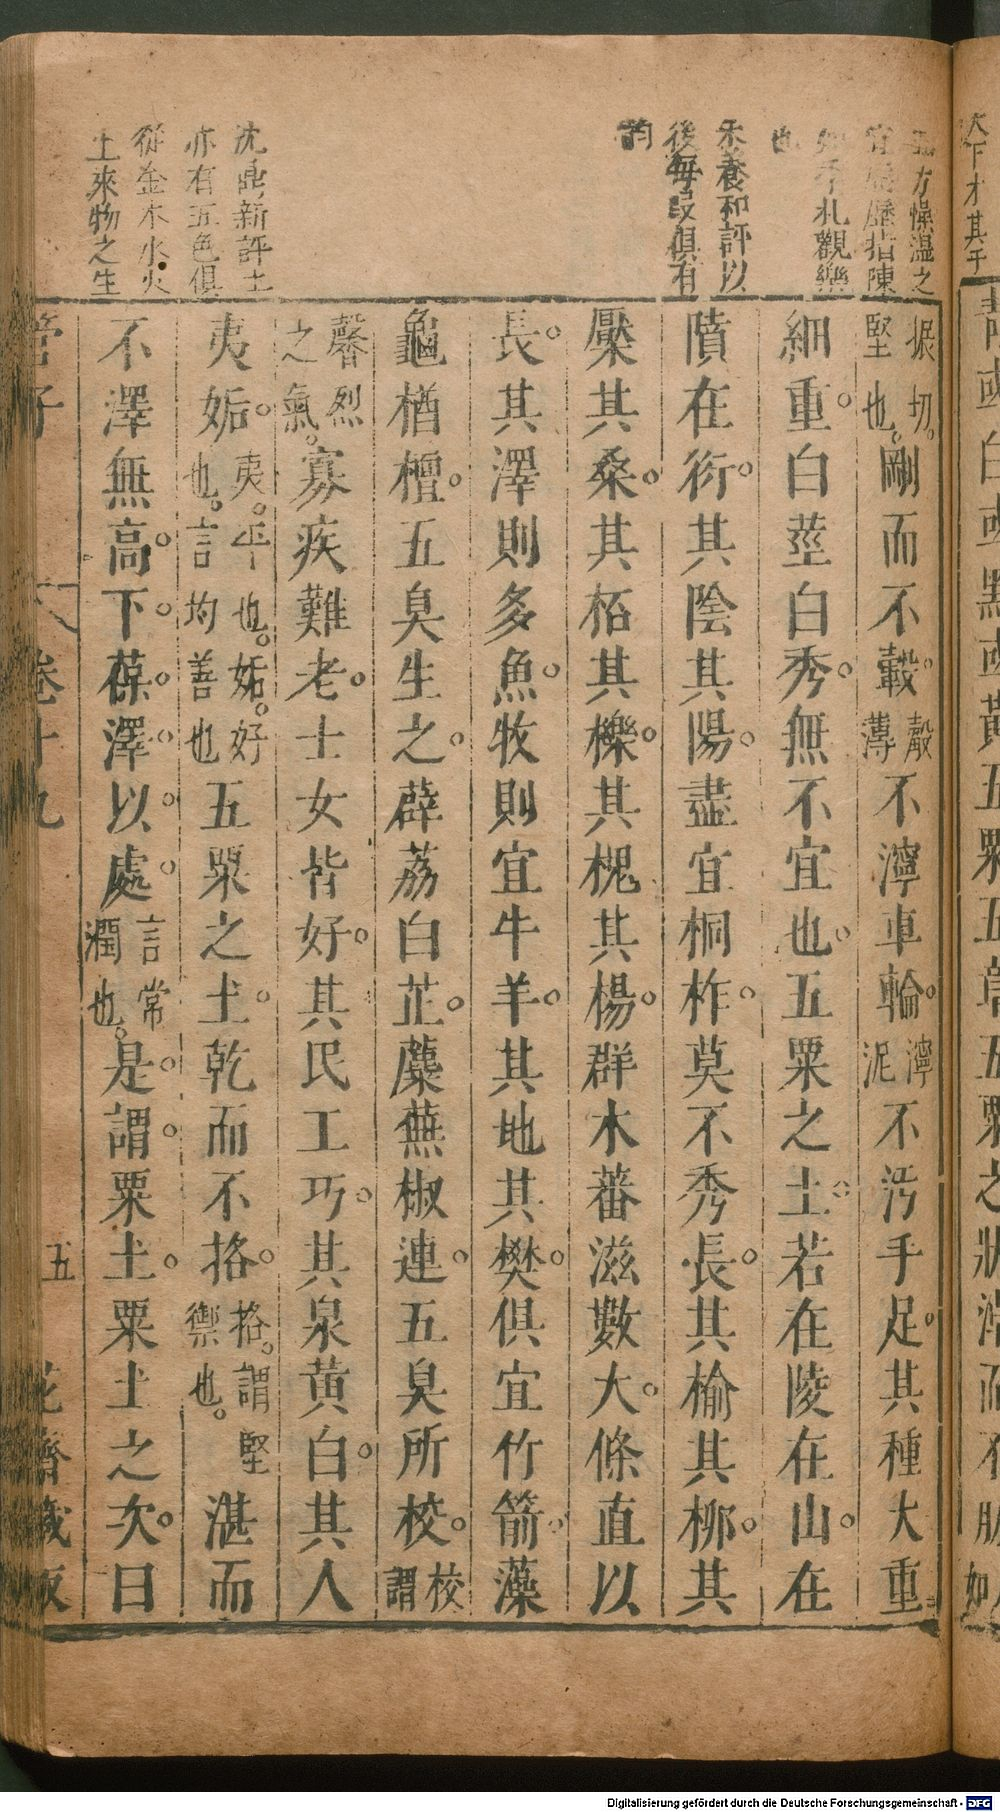 方燥溫之
指陳
札觀樂
也
朱養和評以
後每段俱有
韵
沈鼎新評土
亦有五色俱
從金木水火
土來物之生
据切。
堅也。剛而不觳觳薄不濘車輪濘泥不污手足其種大重
細重白莖白秀無不宜也五粟之土若在陵在山在
隫在衍其陰其陽盡宜桐柞莫不秀長其榆其柳其
檿其桑其柘其櫟其槐其楊群木蕃滋數大條直以
長其澤則多魚牧則宜牛羊其地其樊俱宜竹箭藻
龜楢檀五臭生之薜荔白芷蘪蕪椒連五臭所校校謂
馨烈之氣。寡疾難老士女皆好其民工巧其泉黃白其人
夷姤夷。平也。姤。好也。言均善也五粟之土乾而不挌挌。謂堅禦也。湛而
不澤無高下葆澤以處言常潤也。是謂粟土粟土之次曰
管子 卷十九 五 花齋藏板
天下才其于
白或黑或黃五粟五章五粟之狀淖而不肕如
Digitalisierung gefördert durch die Deutsche Forschungsgemeinschaft - DFG